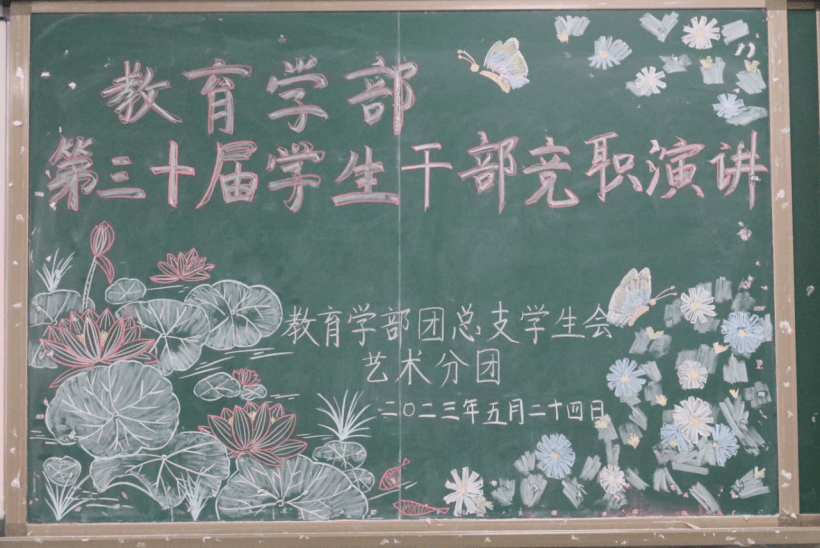 教育学部
第三十届学生干部竞职演讲
教育学部团总支学生会
艺术分团
二〇二三年五月二十四日